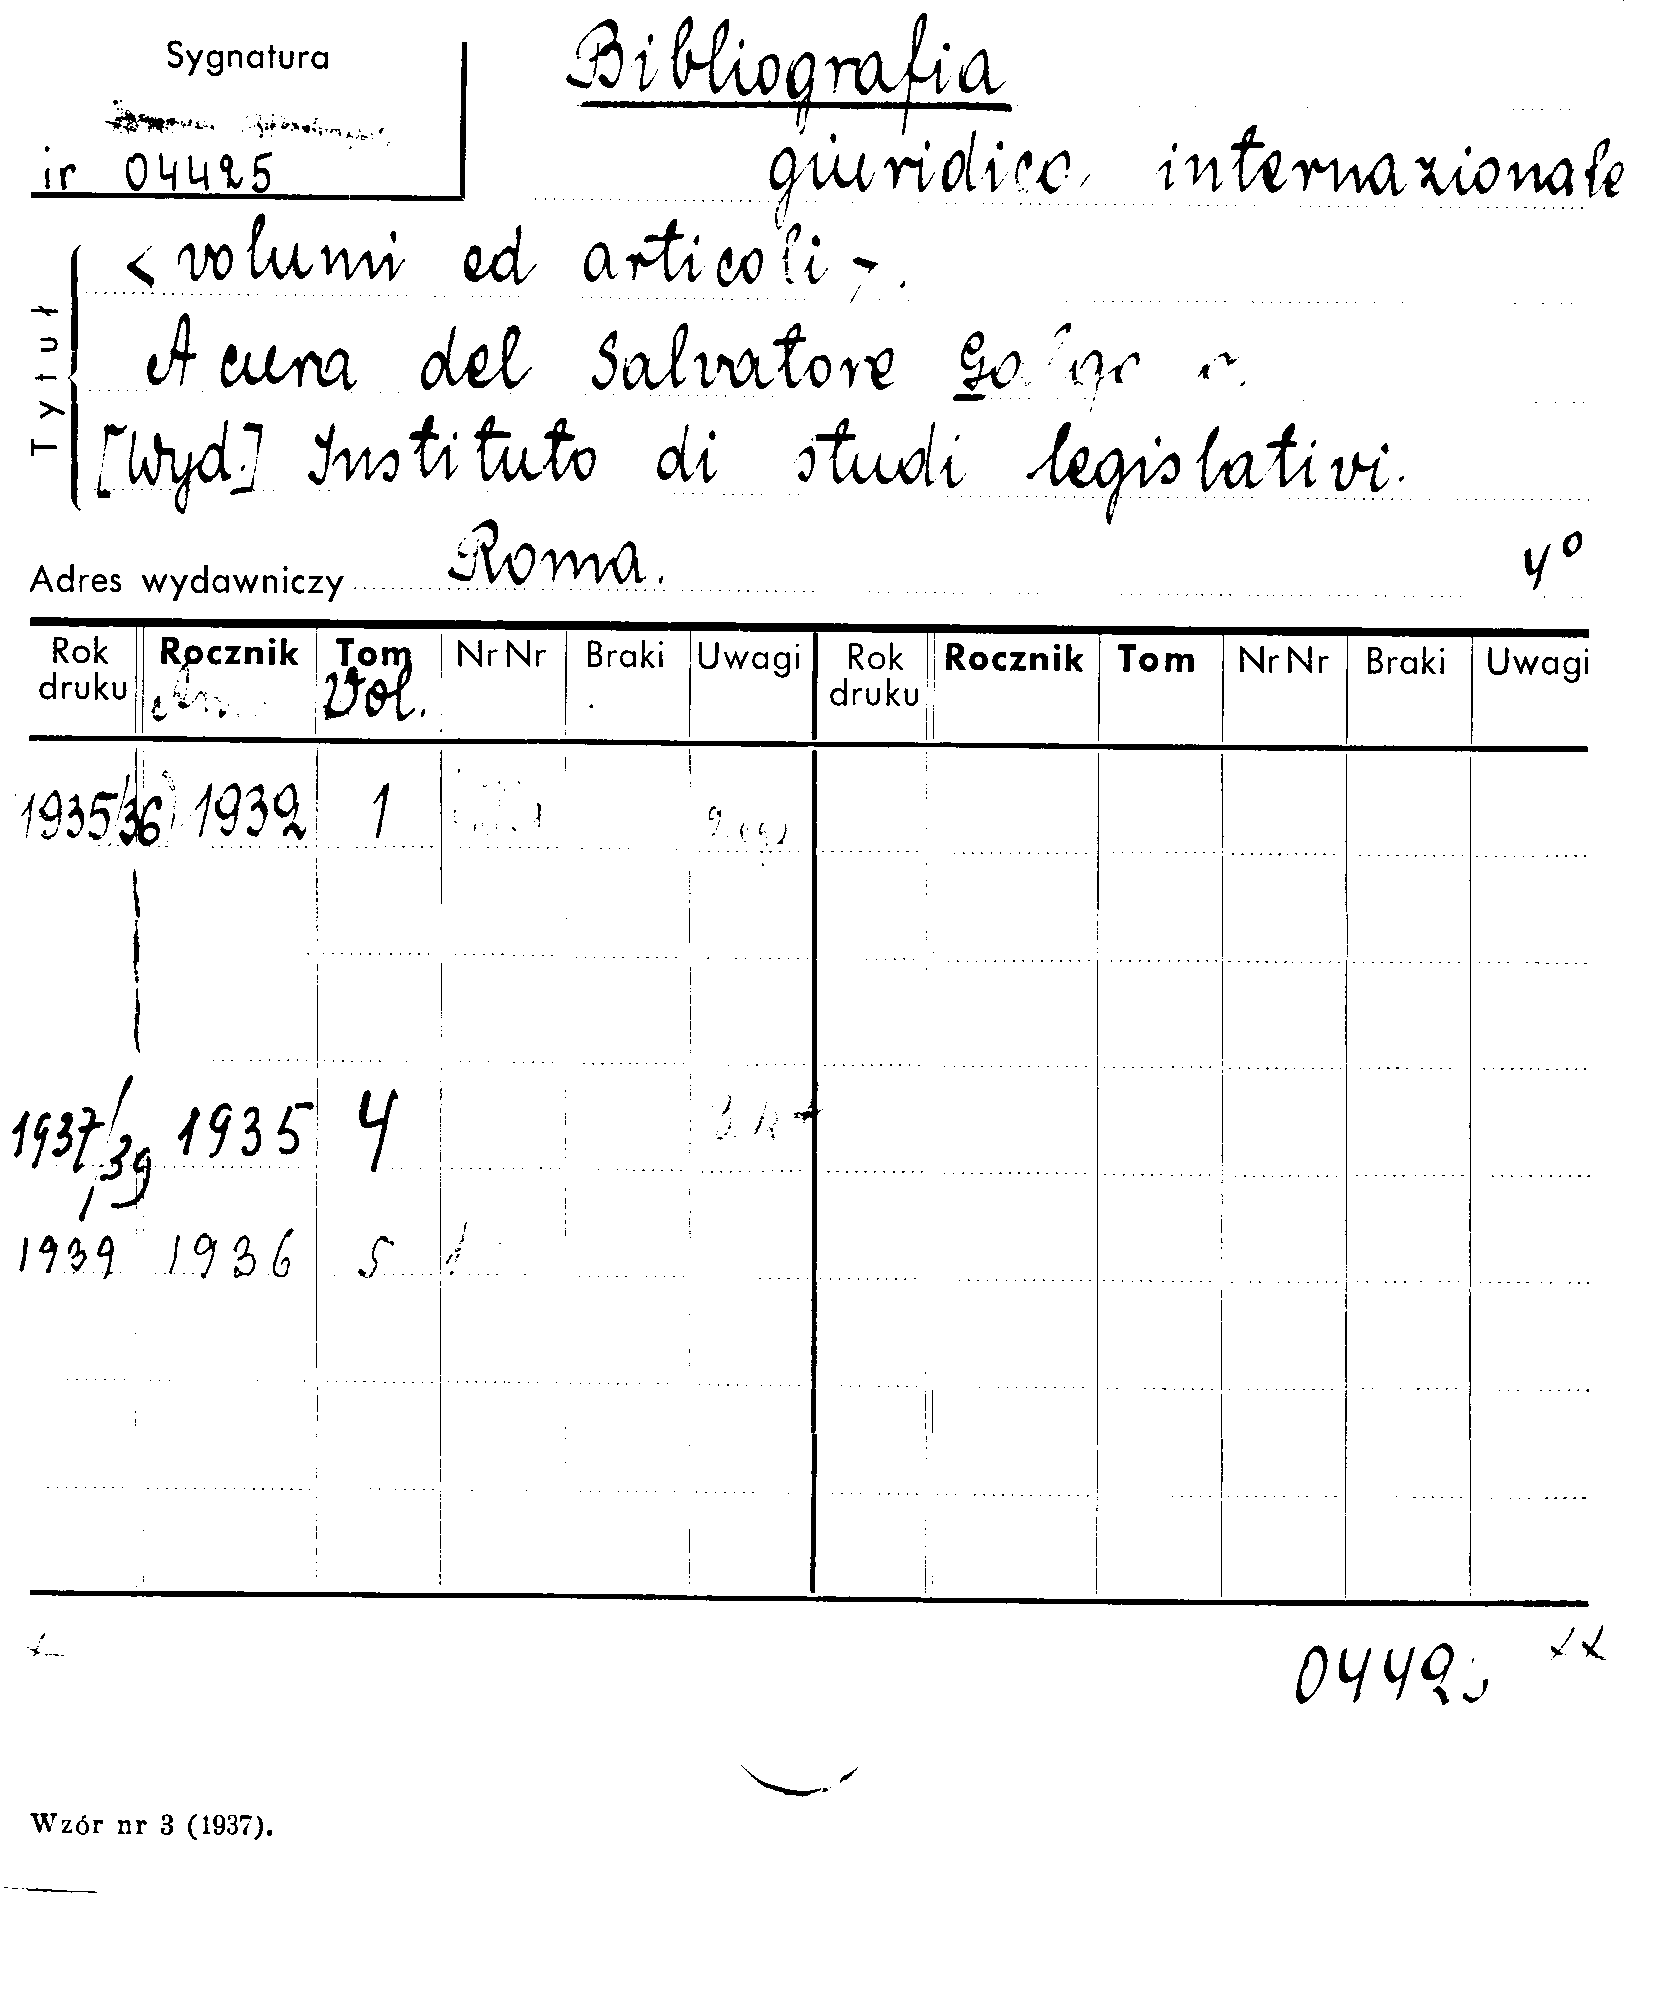 Sygnatura
ir 04425
Bibliografia
giuridico internazionale
< volumi ed articoli >.
A cura del Salvatore
[Wyd.] Instituto di studi legislativi.
Tytuł
Adres wydawniczy Roma. 4°
Rok druku Rocznik Tom Nr Nr Braki Uwagi Rok druku Rocznik Tom Nr Nr Braki Uwagi
Vol.
1935/36 1932 1
1937/39 1935 4
1939 1936 5
0442
Wzór nr 3 (1937).